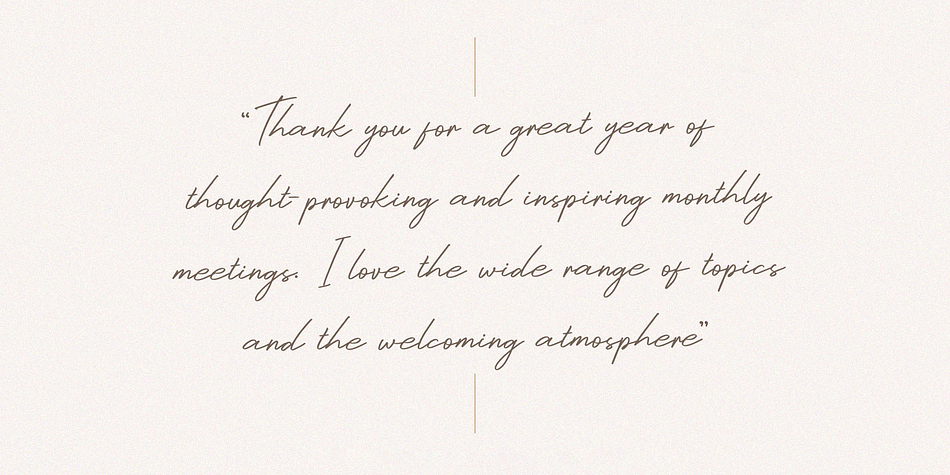 “Thank you for a great year of
thought-provoking and inspiring monthly
meetings. I love the wide range of topics
and the welcoming atmosphere”